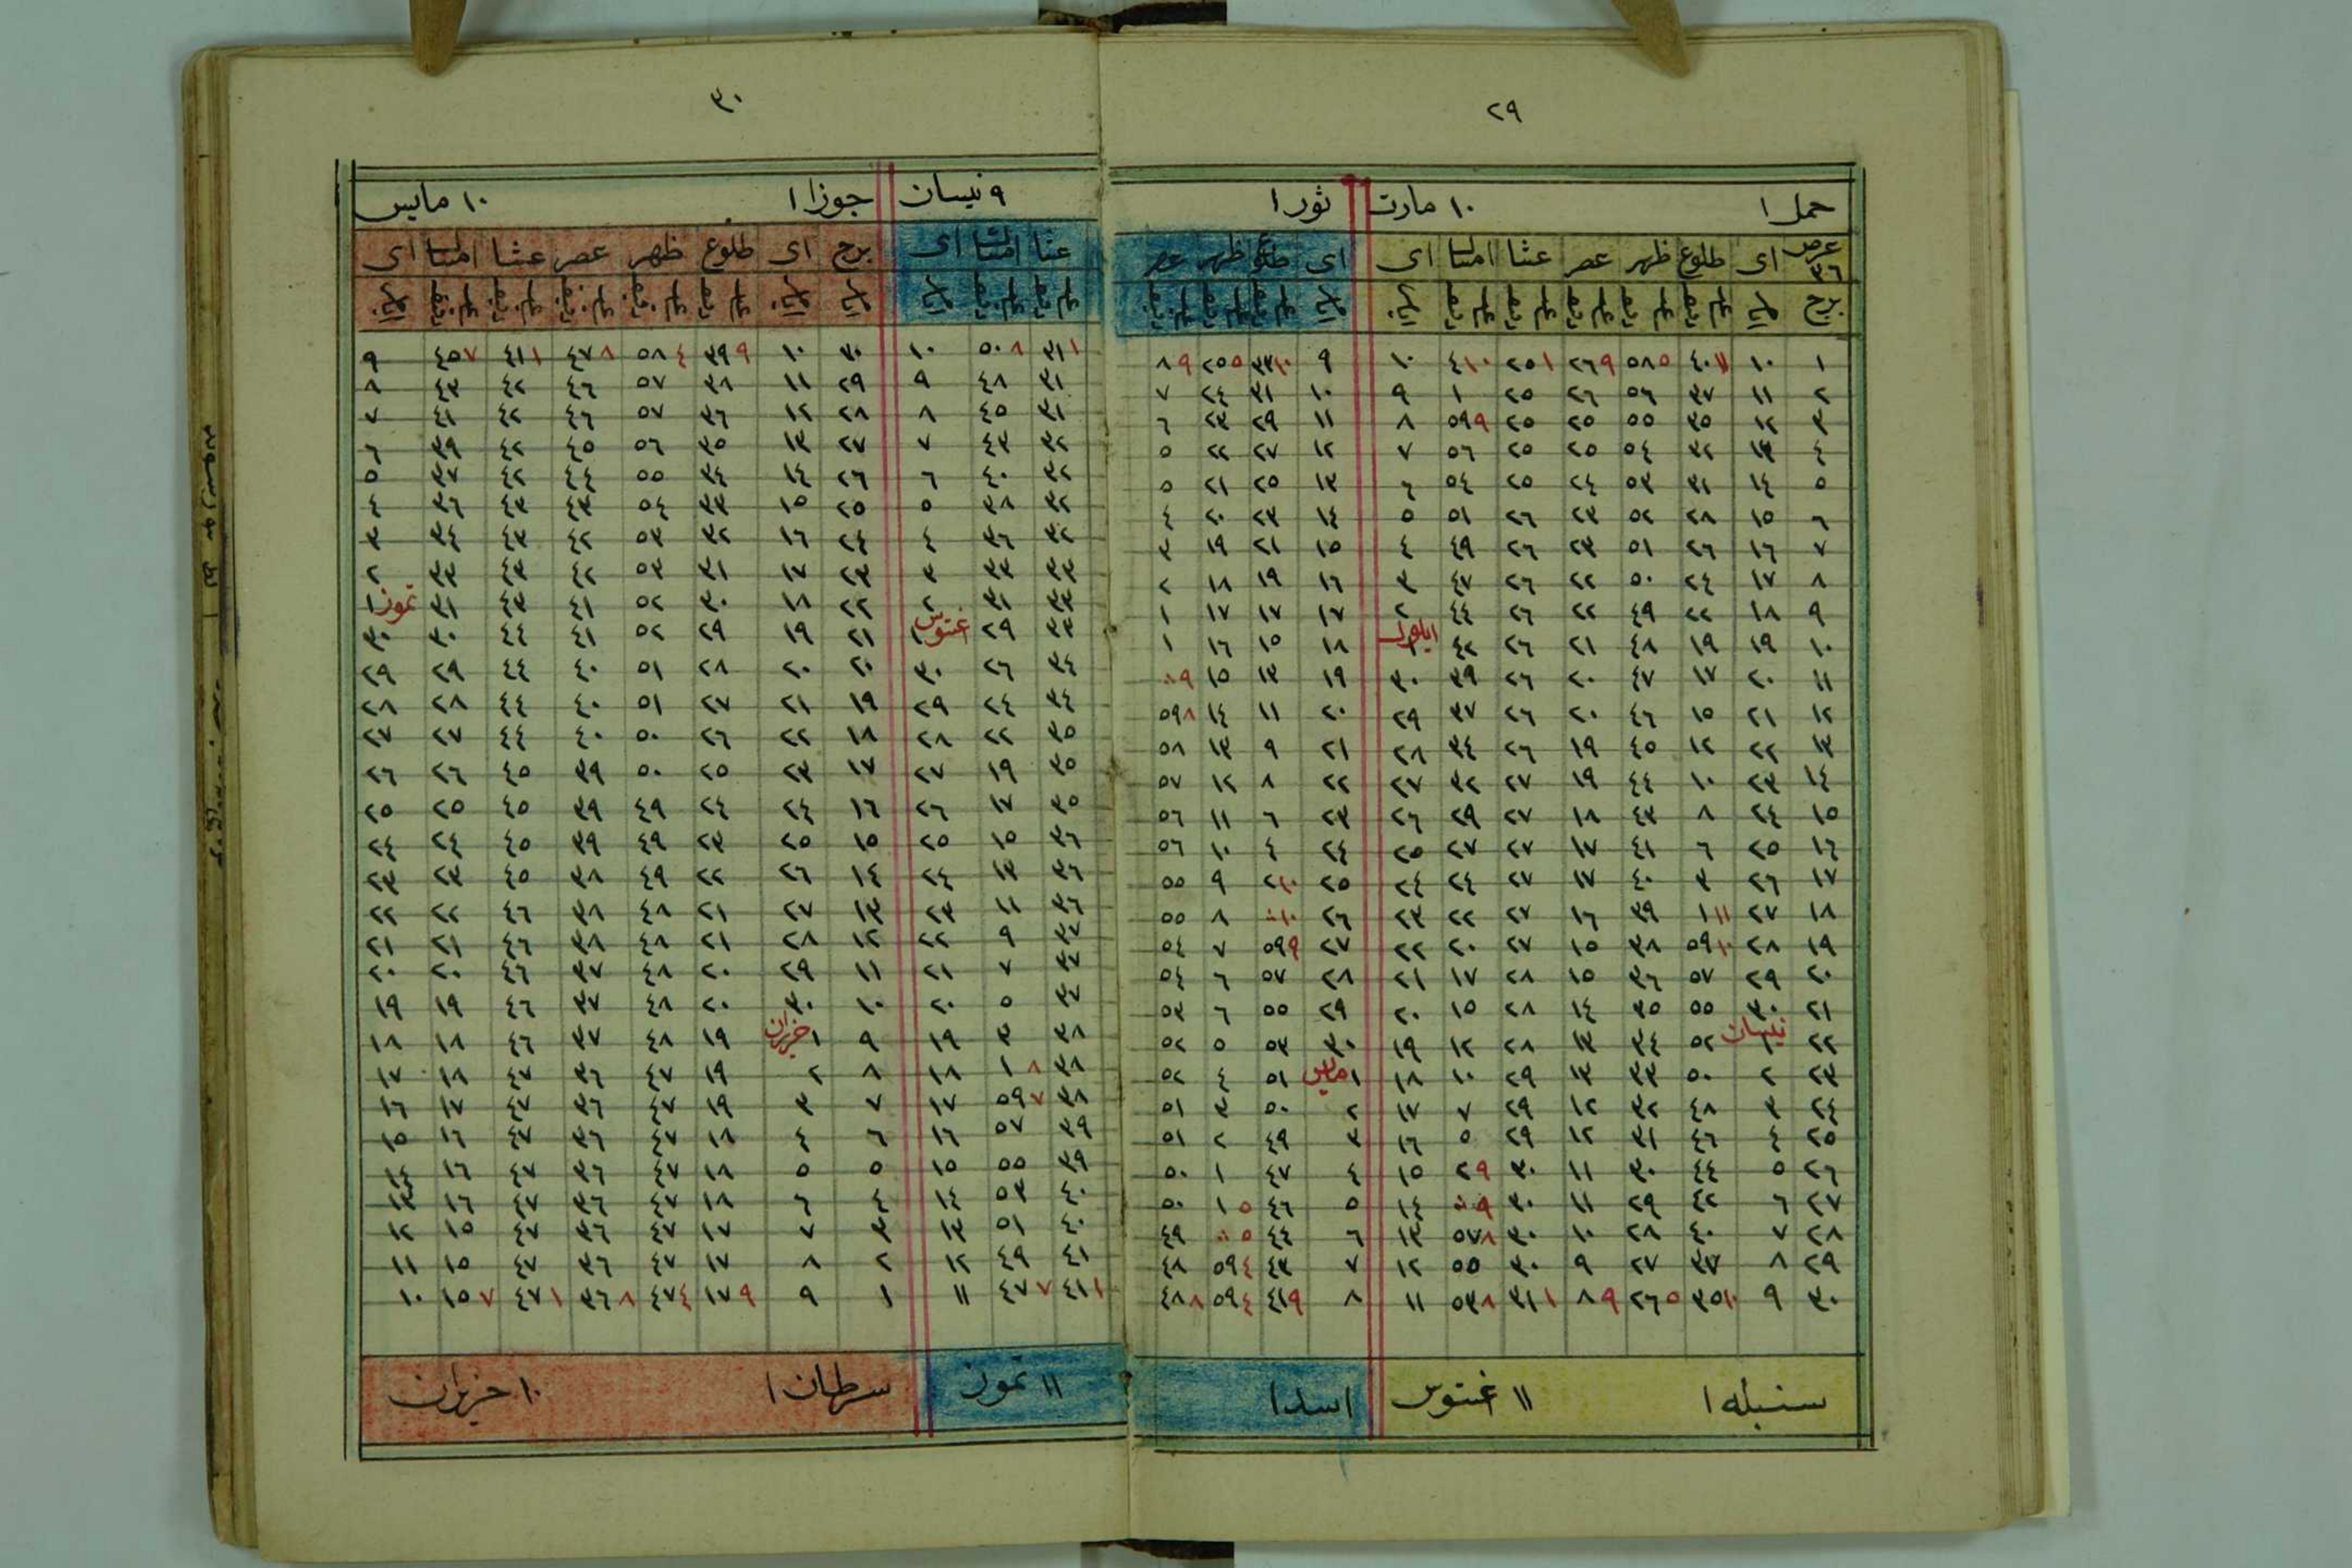 ٢٩
حمل ١ ١٠ مارت ثور ١
عرض ٣٦ ای طلوع ظهر عصر عشا امسا ای ای طلوع ظهر عصر
برج
١ ١٠ ١١ ٤٠ ٥ ٥٨ ٩ ٢٦ ١ ٢٥ ١٠ ٤ ١٠ ٩ ١٠ ٣٣ ٥ ٢٥ ٩ ٨
٢ ١١ ٣٧ ٥٦ ٢٦ ٢٥ ١ ٩ ١٠ ٣١ ٢٤ ٧
٣ ١٢ ٣٥ ٥٥ ٢٥ ٢٥ ٩ ٥٩ ٨ ١١ ٢٩ ٢٣ ٦
٤ ١٣ ٣٢ ٥٤ ٢٥ ٢٥ ٥٦ ٧ ١٢ ٢٧ ٢٢ ٥
٥ ١٤ ٣١ ٥٣ ٢٤ ٢٥ ٥٤ ٦ ١٣ ٢٥ ٢١ ٥
٦ ١٥ ٢٨ ٥٢ ٢٣ ٢٦ ٥١ ٥ ١٤ ٢٣ ٢٠ ٤
٧ ١٦ ٢٦ ٥١ ٢٣ ٢٦ ٤٩ ٤ ١٥ ٢١ ١٩ ٣
٨ ١٧ ٢٤ ٥٠ ٢٢ ٢٦ ٤٧ ٣ ١٦ ١٩ ١٨ ٢
٩ ١٨ ٢٢ ٤٩ ٢٢ ٢٦ ٤٤ ٢ ١٧ ١٧ ١٧ ١
١٠ ١٩ ١٩ ٤٨ ٢١ ٢٦ ٤٢ ١ ايلول ١٨ ١٥ ١٦ ١
١١ ٢٠ ١٧ ٤٧ ٢٠ ٢٦ ٣٩ ٣٠ ١٩ ١٣ ١٥ ٩ ٠٠
١٢ ٢١ ١٥ ٤٦ ٢٠ ٢٦ ٣٧ ٢٩ ٢٠ ١١ ١٤ ٨ ٥٩
١٣ ٢٢ ١٢ ٤٥ ١٩ ٢٦ ٣٤ ٢٨ ٢١ ٩ ١٣ ٥٨
١٤ ٢٣ ١٠ ٤٤ ١٩ ٢٧ ٣٢ ٢٧ ٢٢ ٨ ١٢ ٥٧
١٥ ٢٤ ٨ ٤٣ ١٨ ٢٧ ٢٩ ٢٦ ٢٣ ٦ ١١ ٥٦
١٦ ٢٥ ٦ ٤١ ١٧ ٢٧ ٢٧ ٢٥ ٢٤ ٤ ١٠ ٥٦
١٧ ٢٦ ٣ ٤٠ ١٧ ٢٧ ٢٤ ٢٤ ٢٥ ١٠ ٢ ٩ ٥٥
١٨ ٢٧ ١١ ١ ٣٩ ١٦ ٢٧ ٢٢ ٢٣ ٢٦ ١٠ ٠٠ ٨ ٥٥
١٩ ٢٨ ١٠ ٥٩ ٣٨ ١٥ ٢٧ ٢٠ ٢٢ ٢٧ ٩ ٥٩ ٧ ٥٤
٢٠ ٢٩ ٥٧ ٣٦ ١٥ ٢٨ ١٧ ٢١ ٢٨ ٥٧ ٦ ٥٤
٢١ ٣٠ ٥٥ ٣٥ ١٤ ٢٨ ١٥ ٢٠ ٢٩ ٥٥ ٦ ٥٣
٢٢ ١ نيسان ٥٢ ٣٤ ١٣ ٢٨ ١٢ ١٩ ٣٠ ٥٣ ٥ ٥٢
٢٣ ٢ ٥٠ ٣٣ ١٣ ٢٩ ١٠ ١٨ ١ مايس ٥١ ٤ ٥٢
٢٤ ٣ ٤٨ ٣٢ ١٢ ٢٩ ٧ ١٧ ٢ ٥٠ ٣ ٥١
٢٥ ٤ ٤٦ ٣١ ١٢ ٢٩ ٥ ١٦ ٣ ٤٩ ٢ ٥١
٢٦ ٥ ٤٤ ٣٠ ١١ ٣٠ ٩ ٢ ١٥ ٤ ٤٧ ١ ٥٠
٢٧ ٦ ٤٢ ٢٩ ١١ ٣٠ ٩ ٠٠ ١٤ ٥ ٤٦ ٥ ١ ٥٠
٢٨ ٧ ٤٠ ٢٨ ١٠ ٣٠ ٨ ٥٧ ١٣ ٦ ٤٤ ٥ ٠٠ ٤٩
٢٩ ٨ ٣٧ ٢٧ ٩ ٣٠ ٥٥ ١٢ ٧ ٤٣ ٤ ٥٩ ٤٨
٣٠ ٩ ١٠ ٣٥ ٥ ٢٦ ٩ ٨ ١ ٣١ ٨ ٥٣ ١١ ٨ ٩ ٤١ ٤ ٥٩ ٨ ٤٨
سنبله ١ ١١ اغستوس اسد ١
٣٠
٩ نيسان جوزا ١ ١٠ مايس
عشا امسا ای برج ای طلوع ظهر عصر عشا امسا ای
١ ٣١ ٨ ٥٠ ١٠ ٣٠ ١٠ ٩ ٣٩ ٤ ٥٨ ٨ ٤٧ ١ ٤١ ٧ ٤٥ ٩
٣١ ٤٨ ٩ ٢٩ ١١ ٣٨ ٥٧ ٤٦ ٤٢ ٤٣ ٨
٣١ ٤٥ ٨ ٢٨ ١٢ ٣٦ ٥٧ ٤٦ ٤٢ ٤١ ٧
٣٢ ٤٣ ٧ ٢٧ ١٣ ٣٥ ٥٦ ٤٥ ٤٢ ٣٩ ٦
٣٢ ٤٠ ٦ ٢٦ ١٤ ٣٤ ٥٥ ٤٤ ٤٢ ٣٧ ٥
٣٢ ٣٨ ٥ ٢٥ ١٥ ٣٣ ٥٤ ٤٣ ٤٣ ٣٦ ٤
٣٢ ٣٦ ٤ ٢٤ ١٦ ٣٢ ٥٣ ٤٢ ٤٣ ٣٤ ٣
٣٣ ٣٣ ٣ ٢٣ ١٧ ٣١ ٥٣ ٤٢ ٤٣ ٣٣ ٢
٣٣ ٣١ ٢ ٢٢ ١٨ ٣٠ ٥٢ ٤١ ٤٣ ٣١ تموز ١
٣٣ ٢٩ اغستوس ١ ٢١ ١٩ ٢٩ ٥٢ ٤١ ٤٤ ٣٠ ٣٠
٣٤ ٢٦ ٣٠ ٢٠ ٢٠ ٢٨ ٥١ ٤٠ ٤٤ ٢٩ ٢٩
٣٤ ٢٤ ٢٩ ١٩ ٢١ ٢٧ ٥١ ٤٠ ٤٤ ٢٨ ٢٨
٣٥ ٢٢ ٢٨ ١٨ ٢٢ ٢٦ ٥٠ ٤٠ ٤٤ ٢٧ ٢٧
٣٥ ١٩ ٢٧ ١٧ ٢٣ ٢٥ ٥٠ ٣٩ ٤٥ ٢٦ ٢٦
٣٥ ١٧ ٢٦ ١٦ ٢٤ ٢٤ ٤٩ ٣٩ ٤٥ ٢٥ ٢٥
٣٦ ١٥ ٢٥ ١٥ ٢٥ ٢٣ ٤٩ ٣٩ ٤٥ ٢٤ ٢٤
٣٦ ١٣ ٢٤ ١٤ ٢٦ ٢٢ ٤٩ ٣٨ ٤٥ ٢٣ ٢٣
٣٦ ١١ ٢٣ ١٣ ٢٧ ٢١ ٤٨ ٣٨ ٤٦ ٢٢ ٢٢
٣٧ ٩ ٢٢ ١٢ ٢٨ ٢١ ٤٨ ٣٨ ٤٦ ٢١ ٢١
٣٧ ٧ ٢١ ١١ ٢٩ ٢٠ ٤٨ ٣٧ ٤٦ ٢٠ ٢٠
٣٧ ٥ ٢٠ ١٠ ٣٠ ٢٠ ٤٨ ٣٧ ٤٦ ١٩ ١٩
٣٨ ٣ ١٩ ٩ ١ حزيران ١٩ ٤٨ ٣٧ ٤٦ ١٨ ١٨
٣٨ ٨ ١ ١٨ ٨ ٢ ١٩ ٤٧ ٣٦ ٤٧ ١٨ ١٧
٣٨ ٧ ٥٩ ١٧ ٧ ٣ ١٩ ٤٧ ٣٦ ٤٧ ١٧ ١٦
٣٩ ٥٧ ١٦ ٦ ٤ ١٨ ٤٧ ٣٦ ٤٧ ١٦ ١٥
٣٩ ٥٥ ١٥ ٥ ٥ ١٨ ٤٧ ٣٦ ٤٧ ١٦ ١٤
٤٠ ٥٣ ١٤ ٤ ٦ ١٨ ٤٧ ٣٦ ٤٧ ١٦ ١٣
٤٠ ٥١ ١٣ ٣ ٧ ١٧ ٤٧ ٣٦ ٤٧ ١٥ ١٢
٤١ ٤٩ ١٢ ٢ ٨ ١٧ ٤٧ ٣٦ ٤٧ ١٥ ١١
١ ٤١ ٧ ٤٧ ١١ ١ ٩ ٩ ١٧ ٤ ٤٧ ٨ ٣٦ ١ ٤٧ ٧ ١٥ ١٠
١١ تموز سرطان ١ ١٠ حزيران